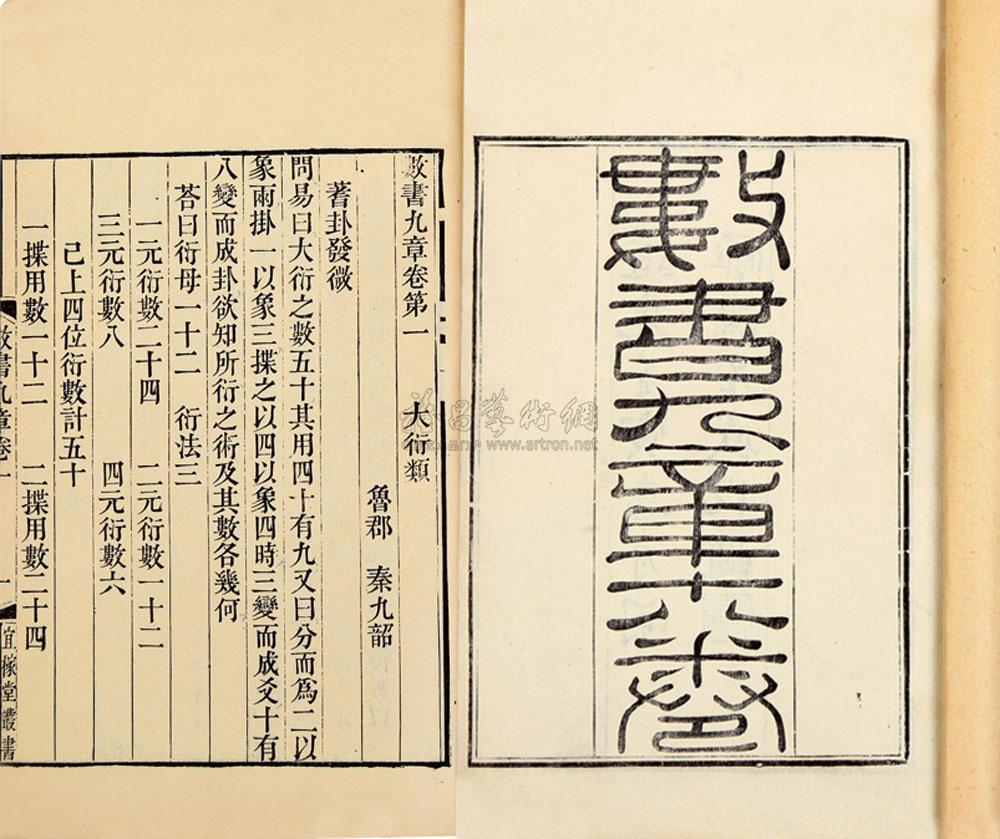 數書九章十八卷
數書九章卷第一 大衍類
魯郡 秦九韶
蓍卦發微
問易曰大衍之數五十其用四十有九又曰分而爲二以
象兩掛一以象三揲之以四以象四時三變而成爻十有
八變而成卦欲知所衍之術及其數各幾何
荅曰衍母一十二 衍法三
一元衍數二十四 二元衍數一十二
三元衍數八 四元衍數六
已上四位衍數計五十
一揲用數一十二 二揲用數二十四
數書九章卷一 一 宜稼堂叢書
www.artron.net